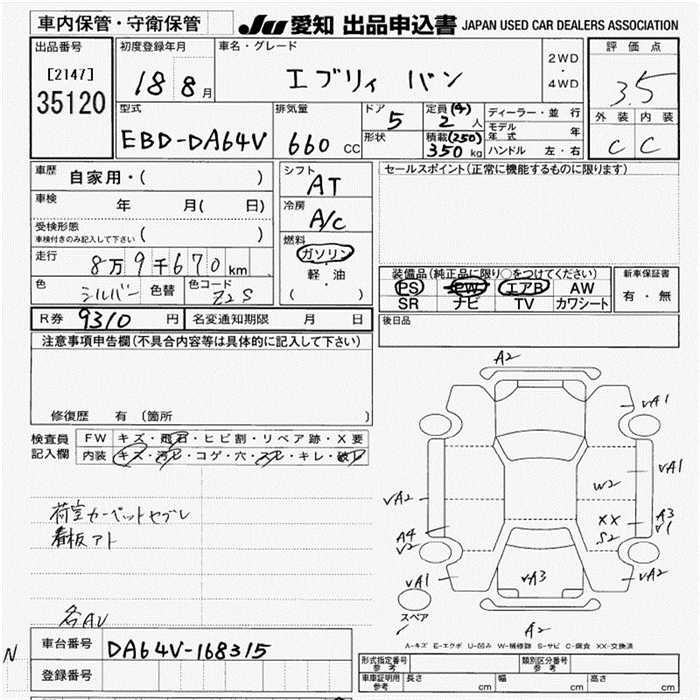 車内保管・守衛保管
JU 愛知 出品申込書 JAPAN USED CAR DEALERS ASSOCIATION
出品番号
[2147]
35120
初度登録年月
18 8月
車名・グレード
エブリィ バン
2WD
・
4WD
評価点
3.5
外装 内装
C C
型式
EBD-DA64V
排気量
660 CC
ドア
5
形状
定員(4)
2人
積載(250)
350kg
ディーラー・並行
モデル年式 年
ハンドル 左・右
車歴
自家用・( )
車検
年 月( 日)
受検形態
車検付きのみ記入して下さい ( )
走行
8万9千670km
色
シルバー
色替
色コード
Z2S
シフト
AT
冷房
A/C
燃料
ガソリン
・
軽油
( )
セールスポイント(正常に機能するものに限ります)
装備品(純正品に限り○をつけてください)
PS PW エアB AW
SR ナビ TV カワシート
新車保証書
有・無
R券 9310 円
名変通知期限 月 日
後日品
注意事項申告欄(不具合内容等は具体的に記入して下さい)
修復歴 有 〔箇所
検査員記入欄
FW キズ・飛石・ヒビ割・リペア跡・X要
内装 キズ・汚レ・コゲ・穴・スレ・キレ・破レ
荷室カーペットセブレ
看板アト
各AU
A2
vA1
vA1
W2
vA2
XX
S2
A3
v1
A4
v2
vA1
vA3
vA2
スペア
A2
A-キズ E-エクボ U-凹み W-補修跡 S-サビ C-腐食 XX-交換済
N
車台番号 DA64V-168315
登録番号
形式指定番号 参考
類別区分番号 参考
車庫証明用 参考 長さ cm 幅 cm 高さ cm